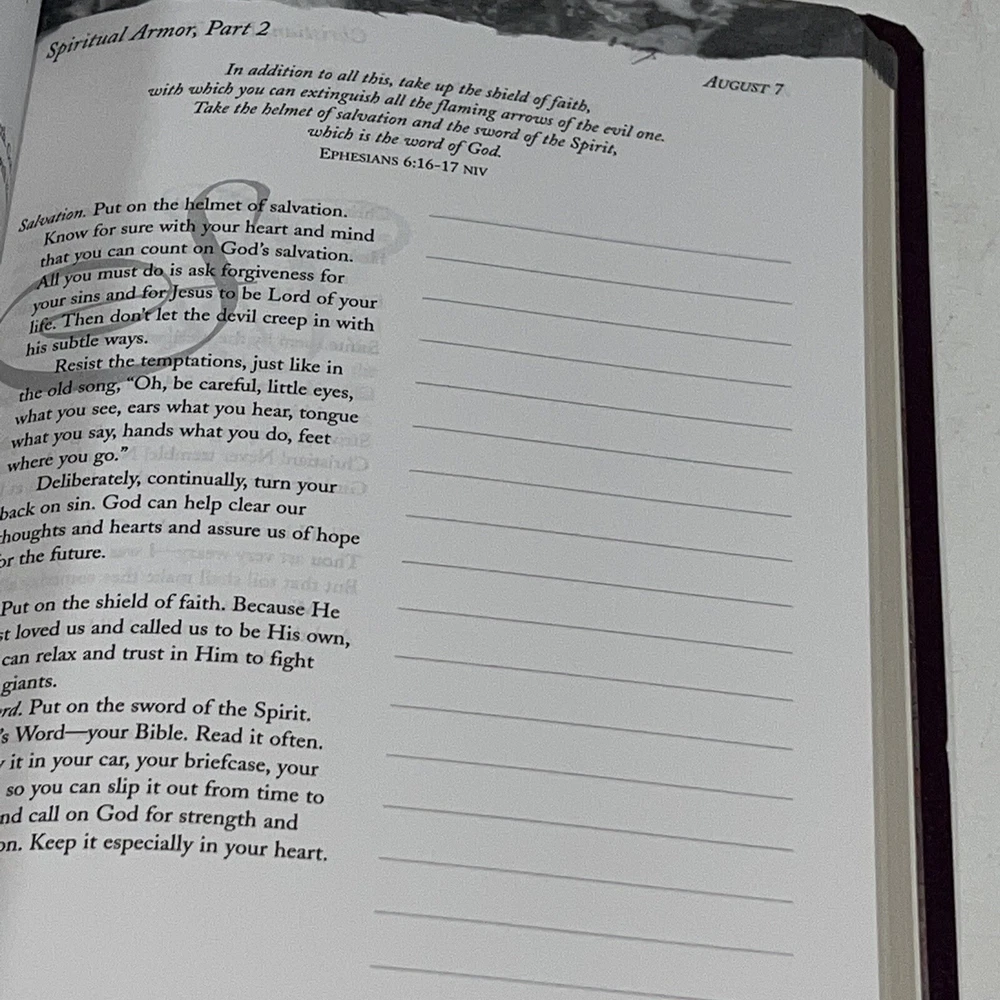 Spiritual Armor, Part 2
AUGUST 7
In addition to all this, take up the shield of faith,
with which you can extinguish all the flaming arrows of the evil one.
Take the helmet of salvation and the sword of the Spirit,
which is the word of God.
EPHESIANS 6:16-17 NIV
Salvation. Put on the helmet of salvation.
Know for sure with your heart and mind
that you can count on God's salvation.
All you must do is ask forgiveness for
your sins and for Jesus to be Lord of your
life. Then don't let the devil creep in with
his subtle ways.
Resist the temptations, just like in
the old song, "Oh, be careful, little eyes,
what you see, ears what you hear, tongue
what you say, hands what you do, feet
where you go."
Deliberately, continually, turn your
back on sin. God can help clear our
houghts and hearts and assure us of hope
or the future.
Put on the shield of faith. Because He
st loved us and called us to be His own,
can relax and trust in Him to fight
giants.
rd. Put on the sword of the Spirit.
's Word—your Bible. Read it often.
it in your car, your briefcase, your
so you can slip it out from time to
nd call on God for strength and
on. Keep it especially in your heart.